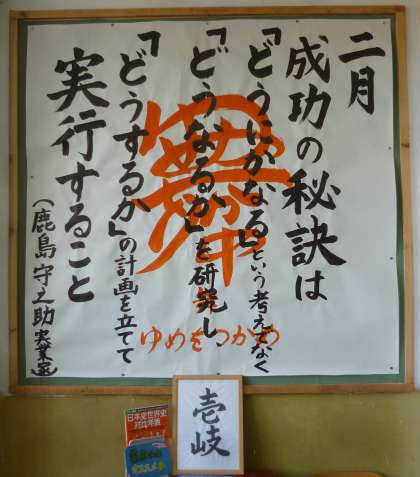 二月
成功の秘訣は
「どうにかなる」という考えでなく
「どうなるか」を研究し
「どうするか」の計画を立てて
実行すること
(鹿島守之助 実業家)
ゆめをつかめ
壱岐
日本史世界史
対照年表